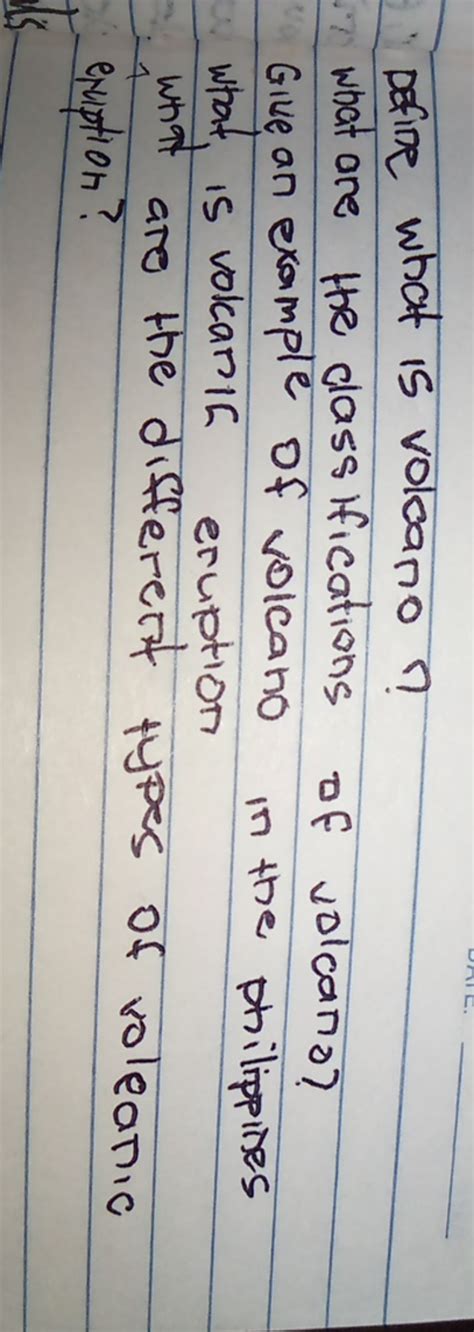 Define what is volcano?
what are the classifications of volcano?
Give an example of volcano in the philippines
what is volcanic eruption
what are the different types of volcanic
eruption?
DATE: